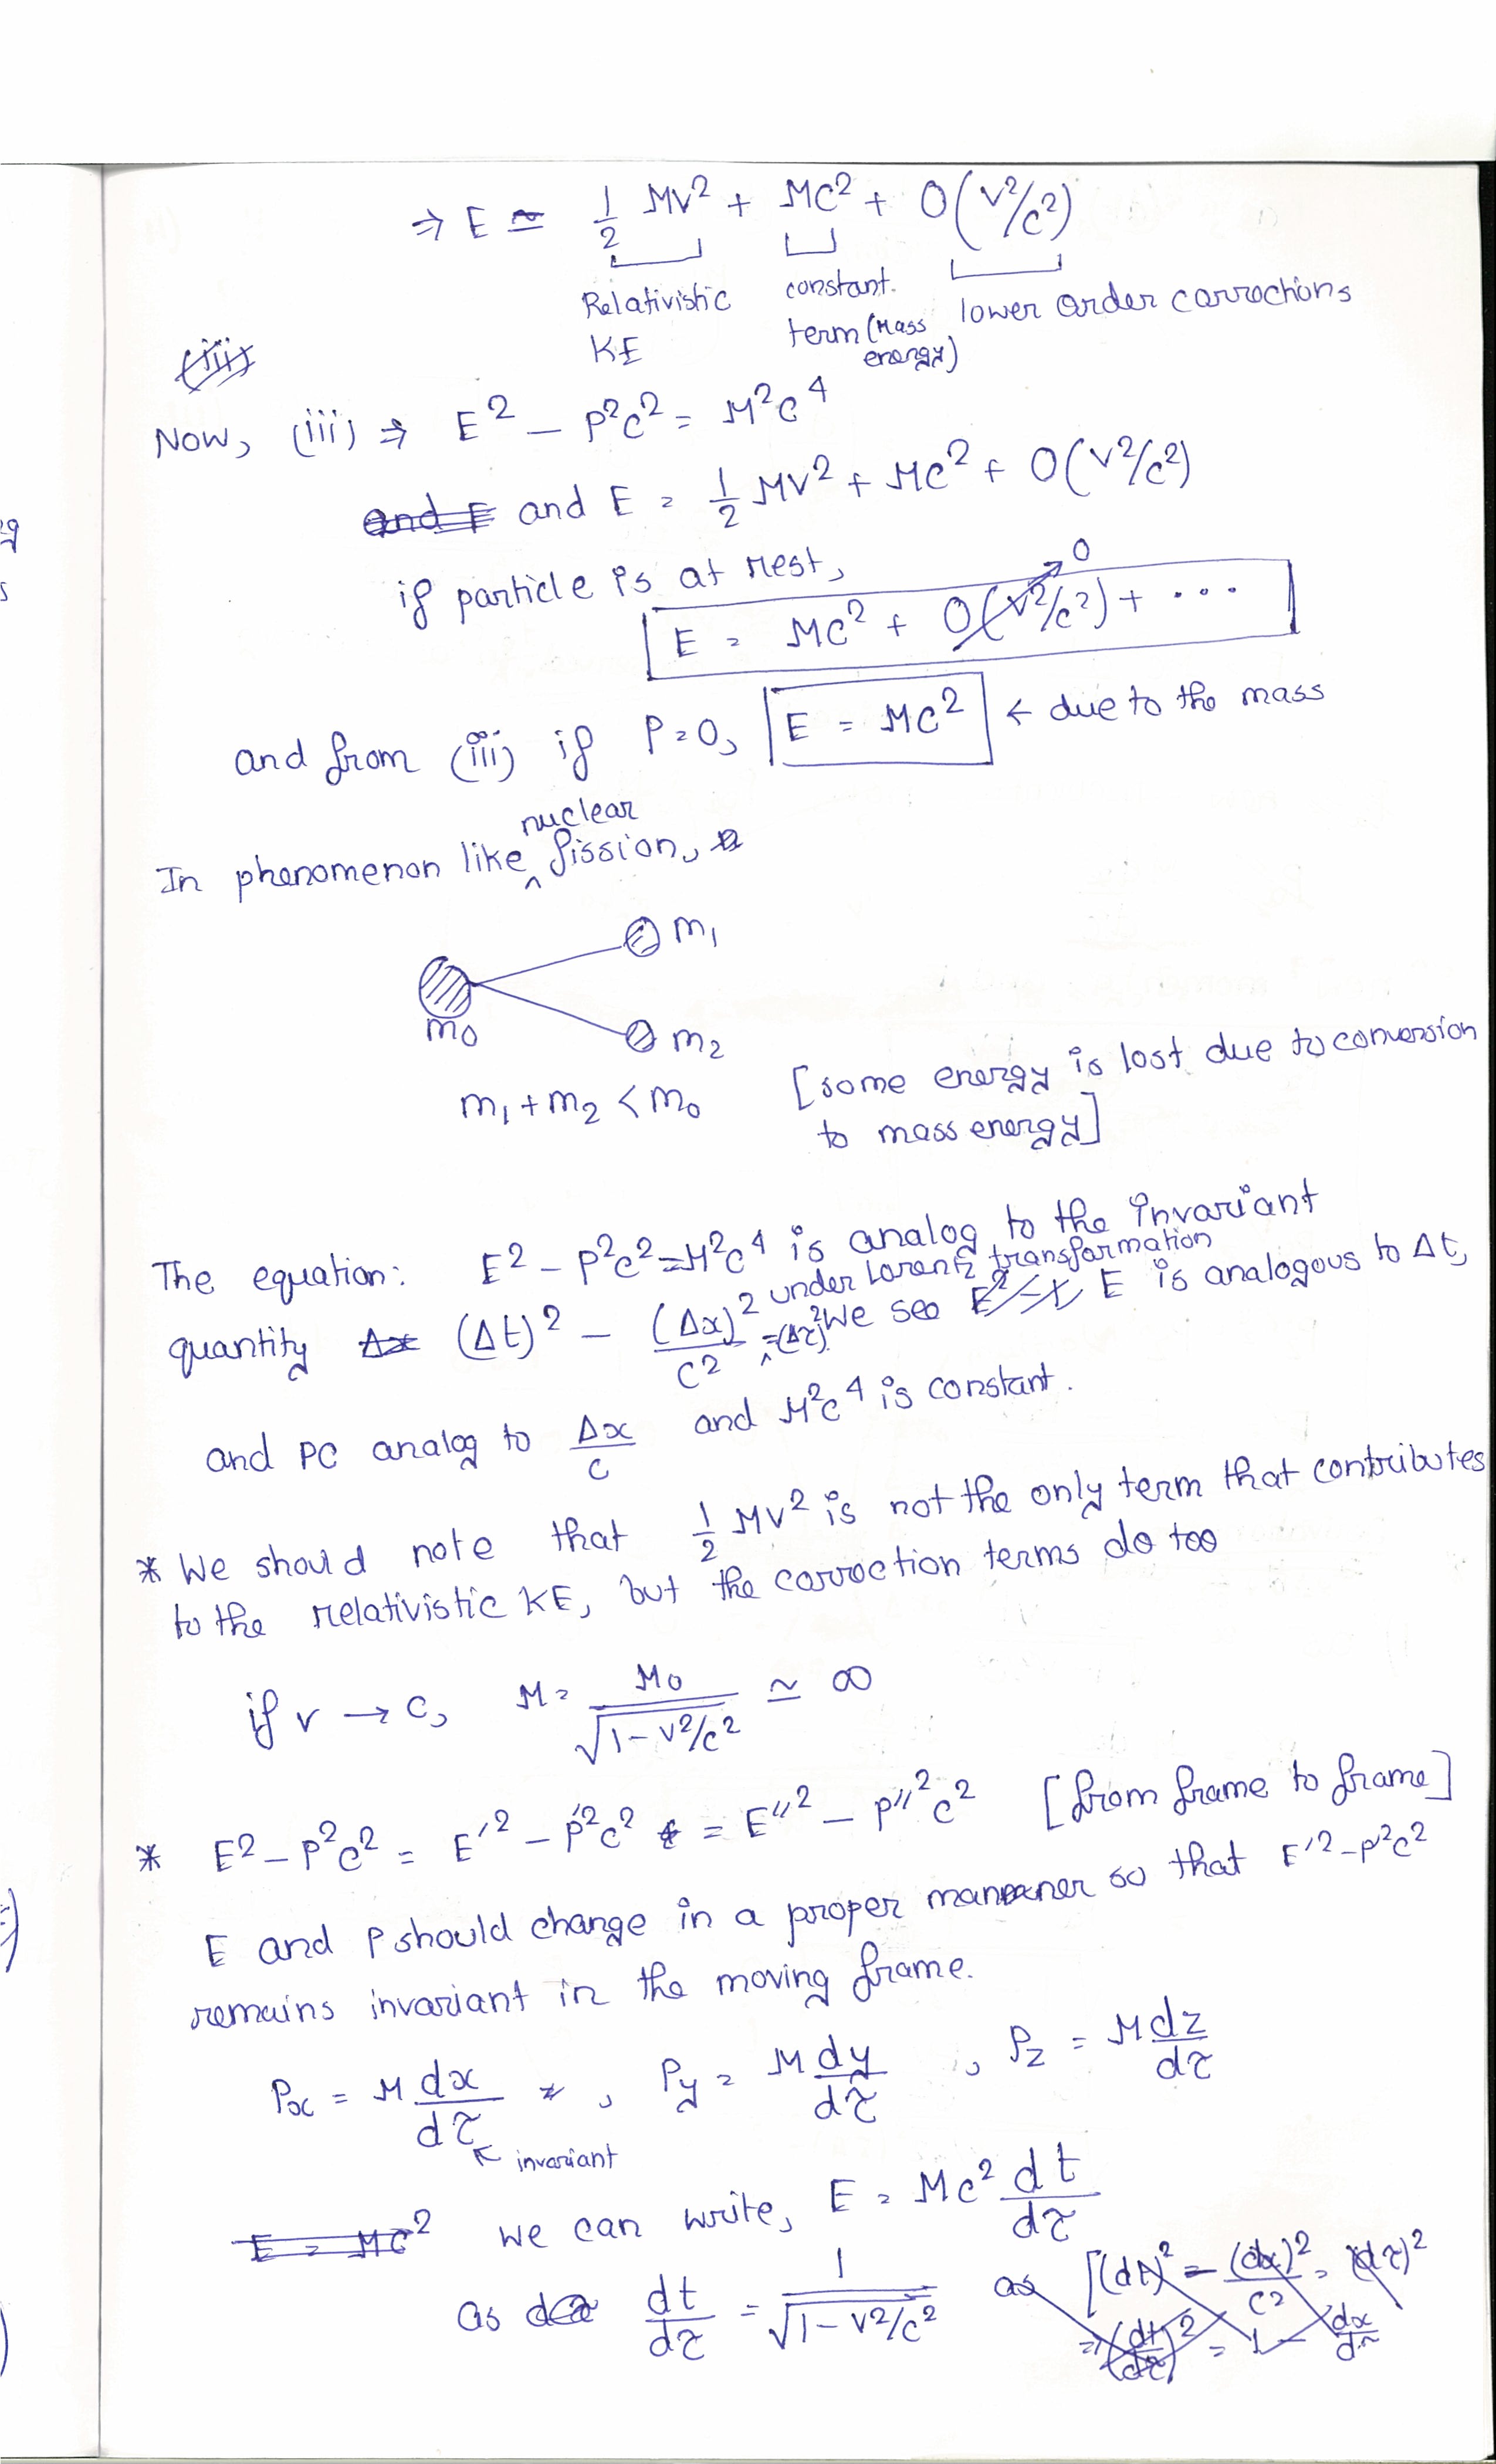 ⇒ E ≃ 1/2 MV² + MC² + O(V²/c²)
Relativistic KE
constant. term (Mass energy)
lower order corrections
(iii)
Now, (iii) ⇒ E² - P²C² = M²C⁴
and E and E = 1/2 MV² + MC² + O(V²/c²)
if particle is at rest,
E = MC² + O(V²/c²) + ... → 0
and from (iii) if P = 0, E = MC² ← due to the mass
nuclear
In phenomenon like ^ fission,
m₁
m₀
m₂
m₁ + m₂ < m₀ [some energy is lost due to conversion
to mass energy]
The equation: E² - P²C² = M²C⁴ is analog to the invariant
under Lorentz transformation
quantity Δx (Δt)² - (Δx)²/C² = (Δτ)². We see E² - E is analogous to Δt,
and PC analog to Δx/C and M²C⁴ is constant.
* We should note that 1/2 MV² is not the only term that contributes
to the relativistic KE, but the correction terms do too
if v → c, M = M₀/√(1 - V²/c²) ≃ ∞
* E² - P²C² = E'² - P'²C² = E''² - P''²C² [from frame to frame]
E and P should change in a proper manner so that E'² - P²C²
remains invariant in the moving frame.
Px = M dx/dτ , Py = M dy/dτ , Pz = M dz/dτ
↖ invariant
E = MC² we can write, E = MC² dt/dτ
as dt/dτ = 1/√(1 - V²/c²) as [(dt)² - (dx)²/C² = (dτ)²
⇒ (dt/dτ)² = 1 - dx/dτ